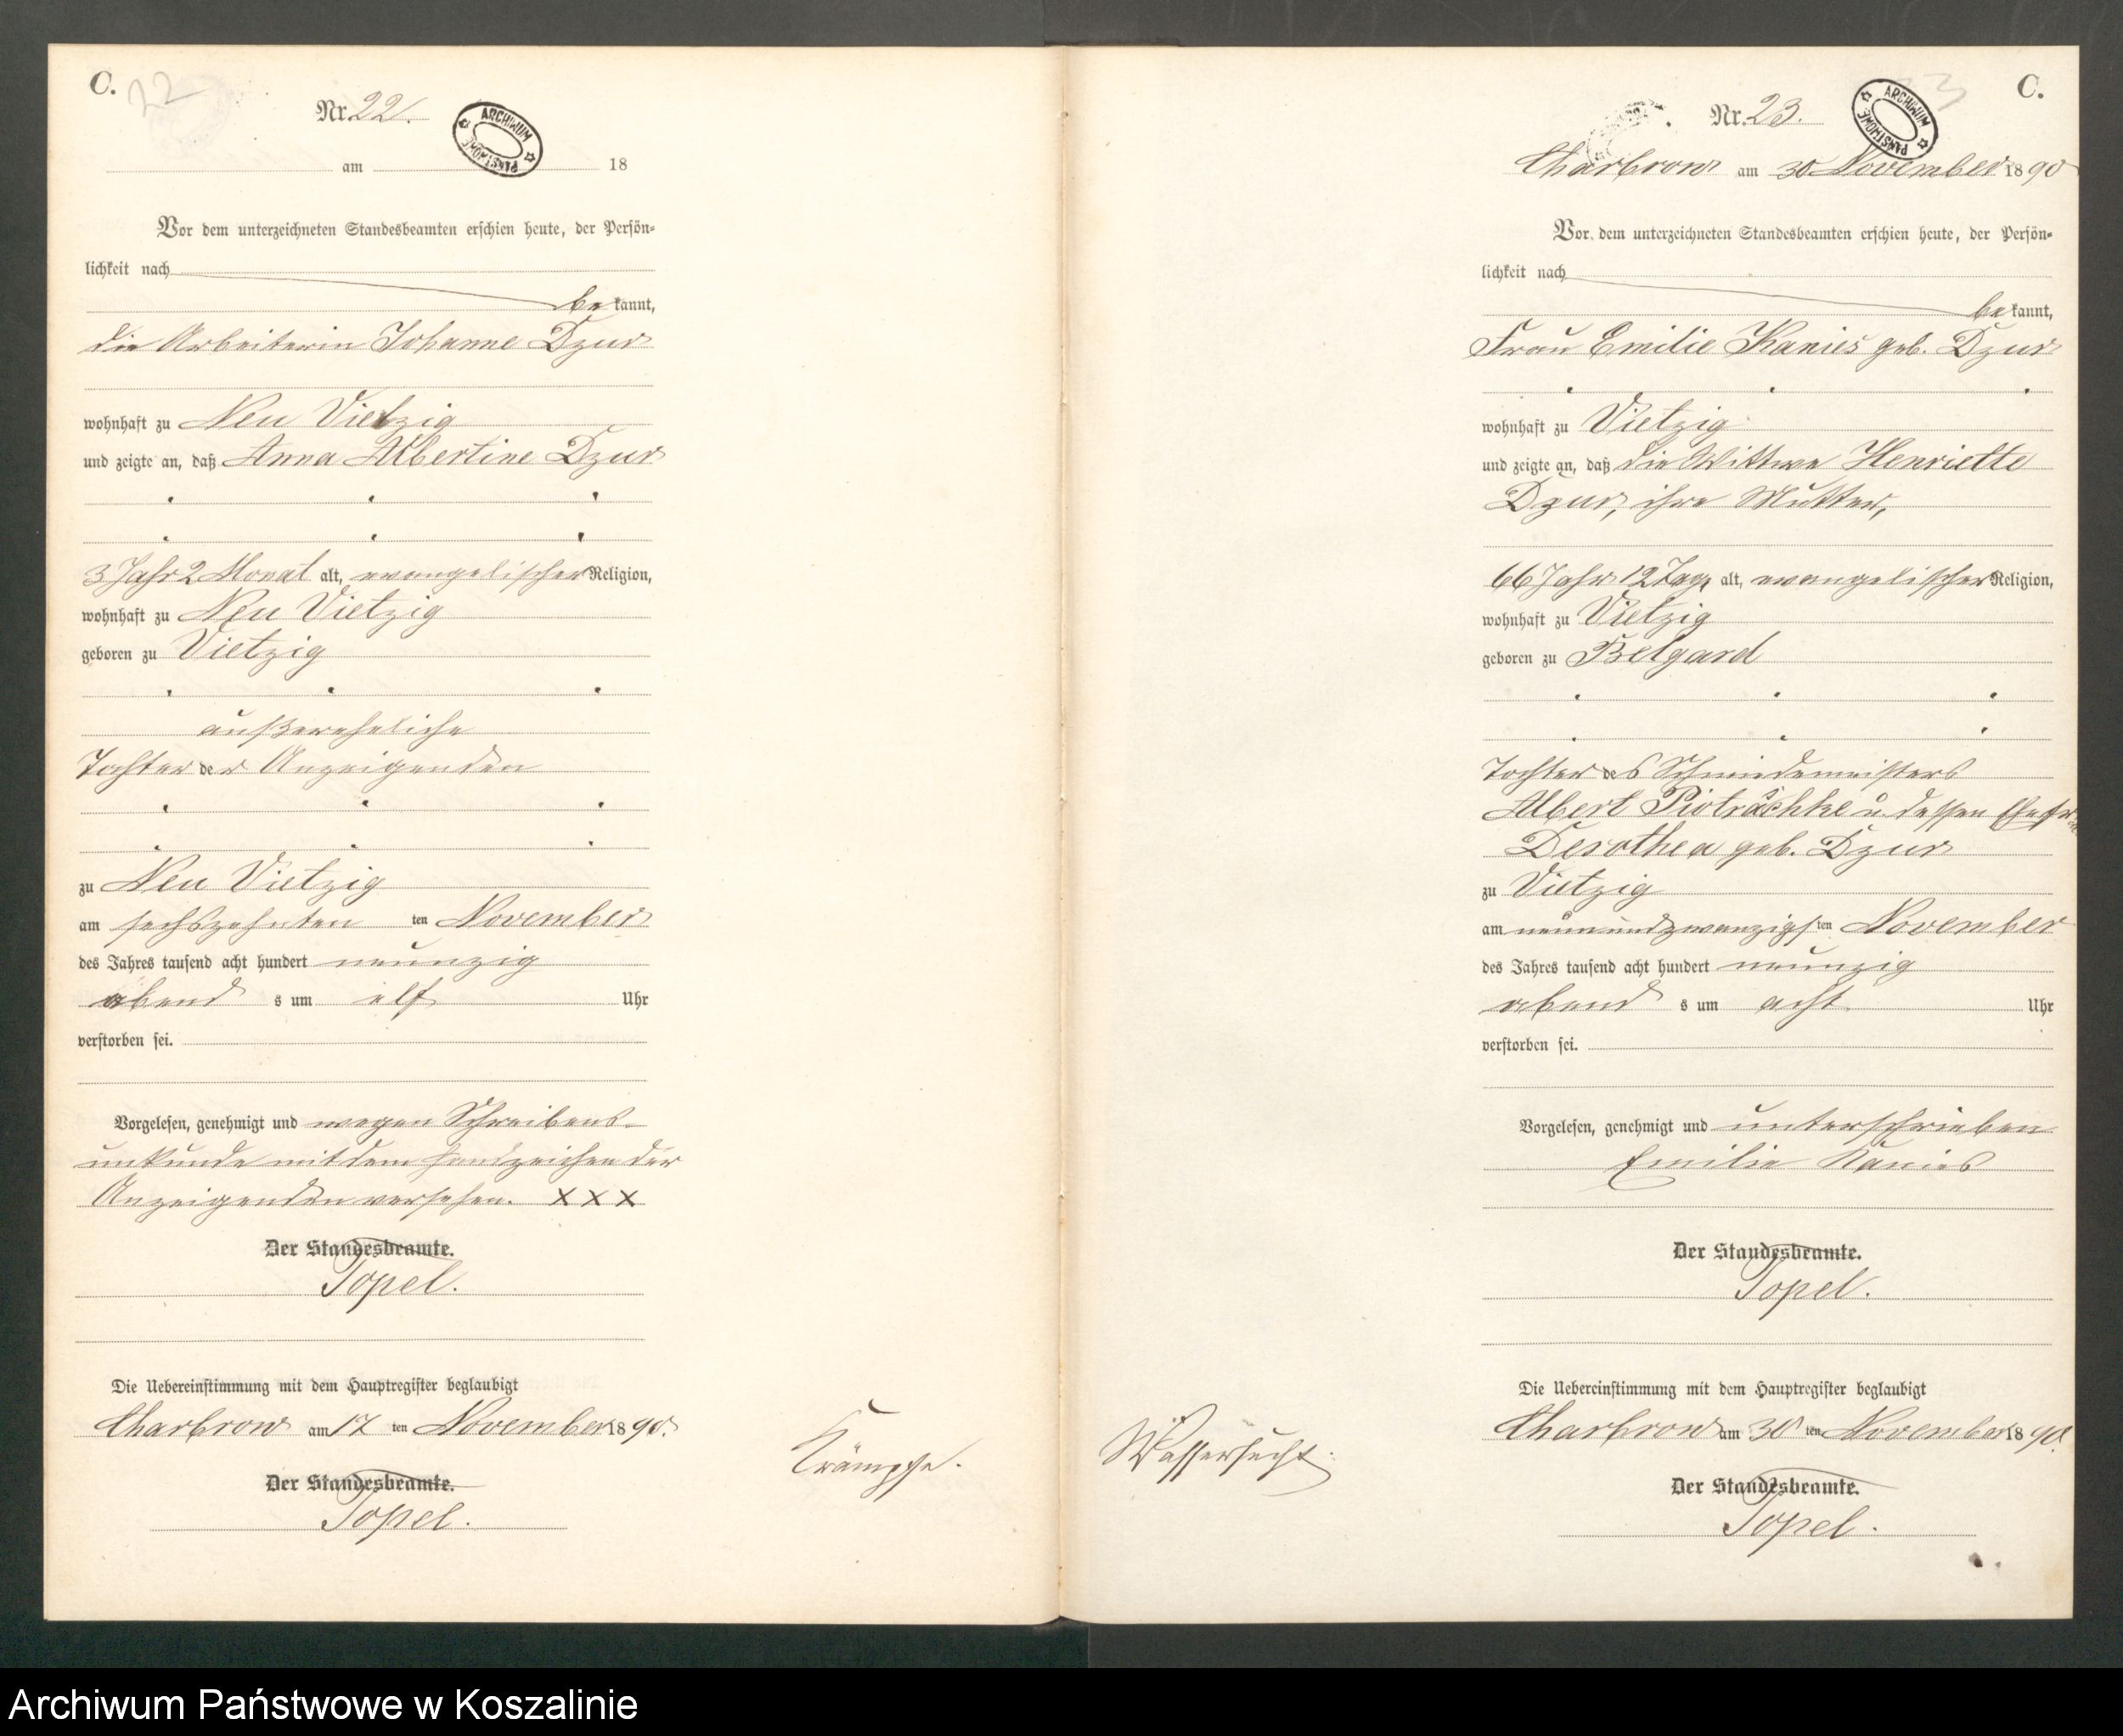 C.
22
Nr. 22.
ARCHIWUM PAŃSTWOWE
am 18
Vor dem unterzeichneten Standesbeamten erschien heute, der Persön-
lichkeit nach
be kannt,
die Arbeiterin Johanne Dzur
wohnhaft zu Neu Vietzig
und zeigte an, daß Anna Albertine Dzur
3 Jahr 2 Monat alt, evangelischer Religion,
wohnhaft zu Neu Vietzig
geboren zu Vietzig
außereheliche
Tochter der Anzeigenden
zu Neu Vietzig
am sechszehnten ten November
des Jahres tausend acht hundert neunzig
abend s um elf Uhr
verstorben sei.
Vorgelesen, genehmigt und wegen Schreibens-
unkunde mit dem Handzeichen der
Anzeigenden versehen. X X X
Der Standesbeamte.
Topel.
Die Uebereinstimmung mit dem Hauptregister beglaubigt
Charbrow am 17 ten November 18 90.
Der Standesbeamte.
Topel.
Krämpfe.
C.
Nr. 23.
ARCHIWUM PAŃSTWOWE
Charbrow am 30 November 18 90
Vor dem unterzeichneten Standesbeamten erschien heute, der Persön-
lichkeit nach
be kannt,
Frau Emilie Kanies geb. Dzur
wohnhaft zu Vietzig
und zeigte an, daß die Wittwe Henriette
Dzur, ihre Mutter,
66 Jahr 12 Tage alt, evangelischer Religion,
wohnhaft zu Vietzig
geboren zu Belgard
Tochter des Schmiedemeisters
Albert Piotraschke u. dessen Ehefrau
Dorothea geb. Dzur
zu Vietzig
am neunundzwanzigs ten November
des Jahres tausend acht hundert neunzig
abend s um acht Uhr
verstorben sei.
Vorgelesen, genehmigt und unterschrieben
Emilie Kanies
Der Standesbeamte.
Topel.
Die Uebereinstimmung mit dem Hauptregister beglaubigt
Charbrow am 30 ten November 18 90.
Der Standesbeamte.
Topel.
Wassersucht.
Archiwum Państwowe w Koszalinie